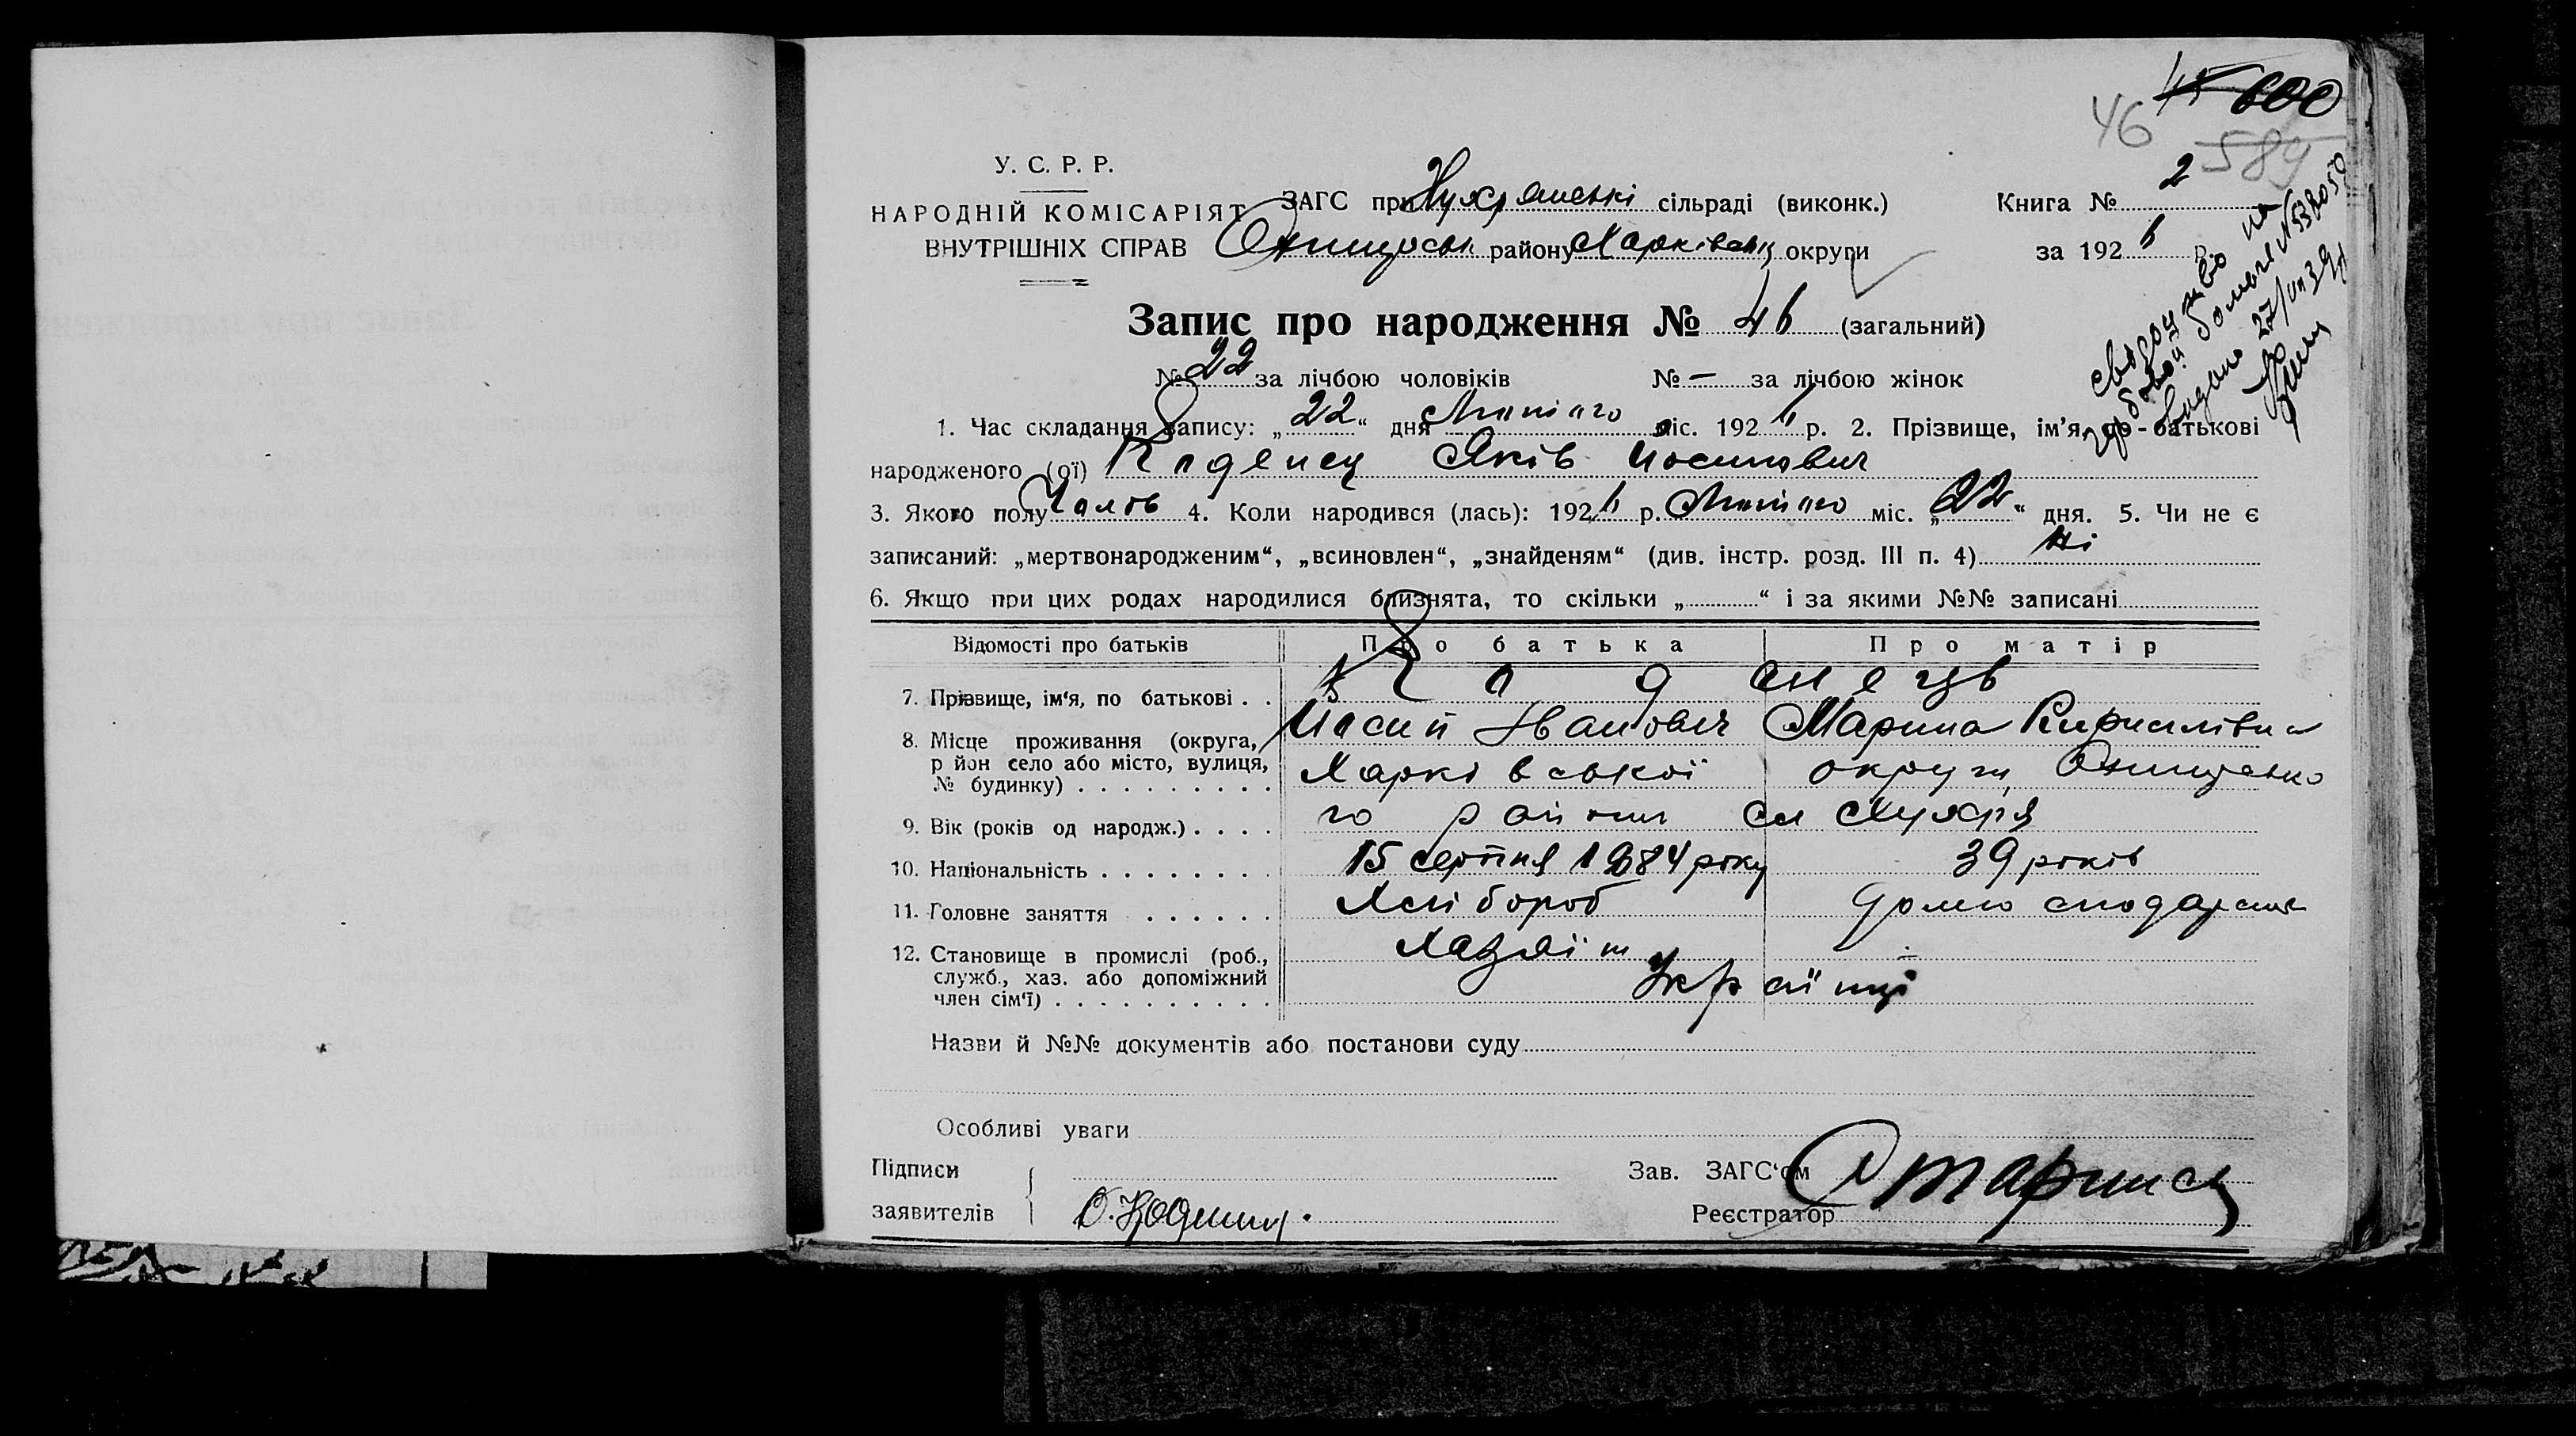 45 600
46 589
У. С. Р. Р.
НАРОДНІЙ КОМІСАРІЯТ
ВНУТРІШНІХ СПРАВ
ЗАГС при сільраді (виконк.)
району Харківськ округи
Книга № 2
за 1926 р.
свідоцтво на
видано 27/VII 39
Запис про народження № 46 (загальний)
№ 22 за лічбою чоловіків № — за лічбою жінок
1. Час складання запису: „22“ дня Лютого міс. 1926 р. 2. Прізвище, ім'я, по-батькові
народженого (ої) Коденец Яків Йосипович
3. Якого полу Чолов 4. Коли народився (лась): 1926 р. Лютого міс. „22“ дня. 5. Чи не є
записаний: „мертвонародженим“, „всиновлен“, „знайденям“ (див. інстр. розд. III п. 4) Ні
6. Якщо при цих родах народилися близнята, то скільки „ “ і за якими №№ записані
Відомості про батьків Про батька Про матір
7. Прізвище, ім'я, по батькові . .
Йосип Іванович Марина Кирилівна
8. Місце проживання (округа,
р йон село або місто, вулиця,
№ будинку) . . . . . . . . .
Харківської округи
го району
9. Вік (років од народж.) . . . .
15 серпня 1884 року 39 років
10. Національність . . . . . . . .
Хлібороб
11. Головне заняття . . . . . .
Хазяїн
12. Становище в промислі (роб.,
служб., хаз. або допоміжний
член сім'ї) . . . . . . . . . .
Українці
Назви й №№ документів або постанови суду
Особливі уваги
Підписи
заявителів
Зав. ЗАГС'ом
Реєстратор